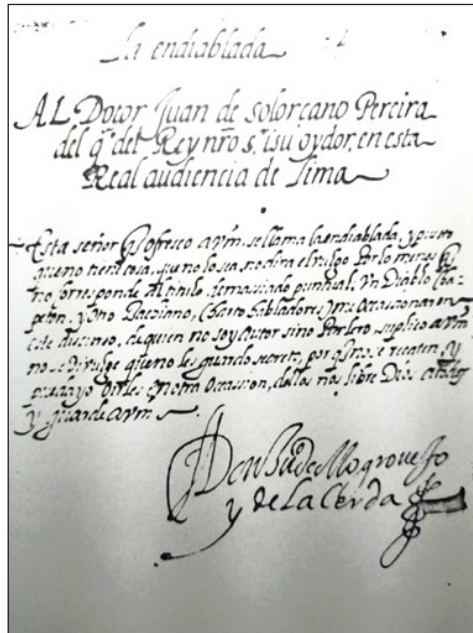 La endiablada
AL Dotor Juan de solorçano Pereira
del q.º del Rey nrõ s.r i su oydor, en esta
Real audiencia de Lima
Esta señor q̃ ofresco a vm. se llama la endiablada, y puesto
que no tiene cosa, que no lo sea, no dira el vulgo Por lo menos q̃
no, corresponde Al titulo, demassiado puntual; Vn Diablo Cha-
peton, y otro Bacquiano, (Harto habladores) me ocasionaron
este discurso, de quien no soy Autor sino Portero, suplico a vm
no se divulge que no les guardo secreto, por q̃ no se recaten, y
pueda yo oirles en otra Ocassion, dellos nos libre Dios a todos
y guarde a vm
Don Ju.º de Mogrouejo
y de La Cerda